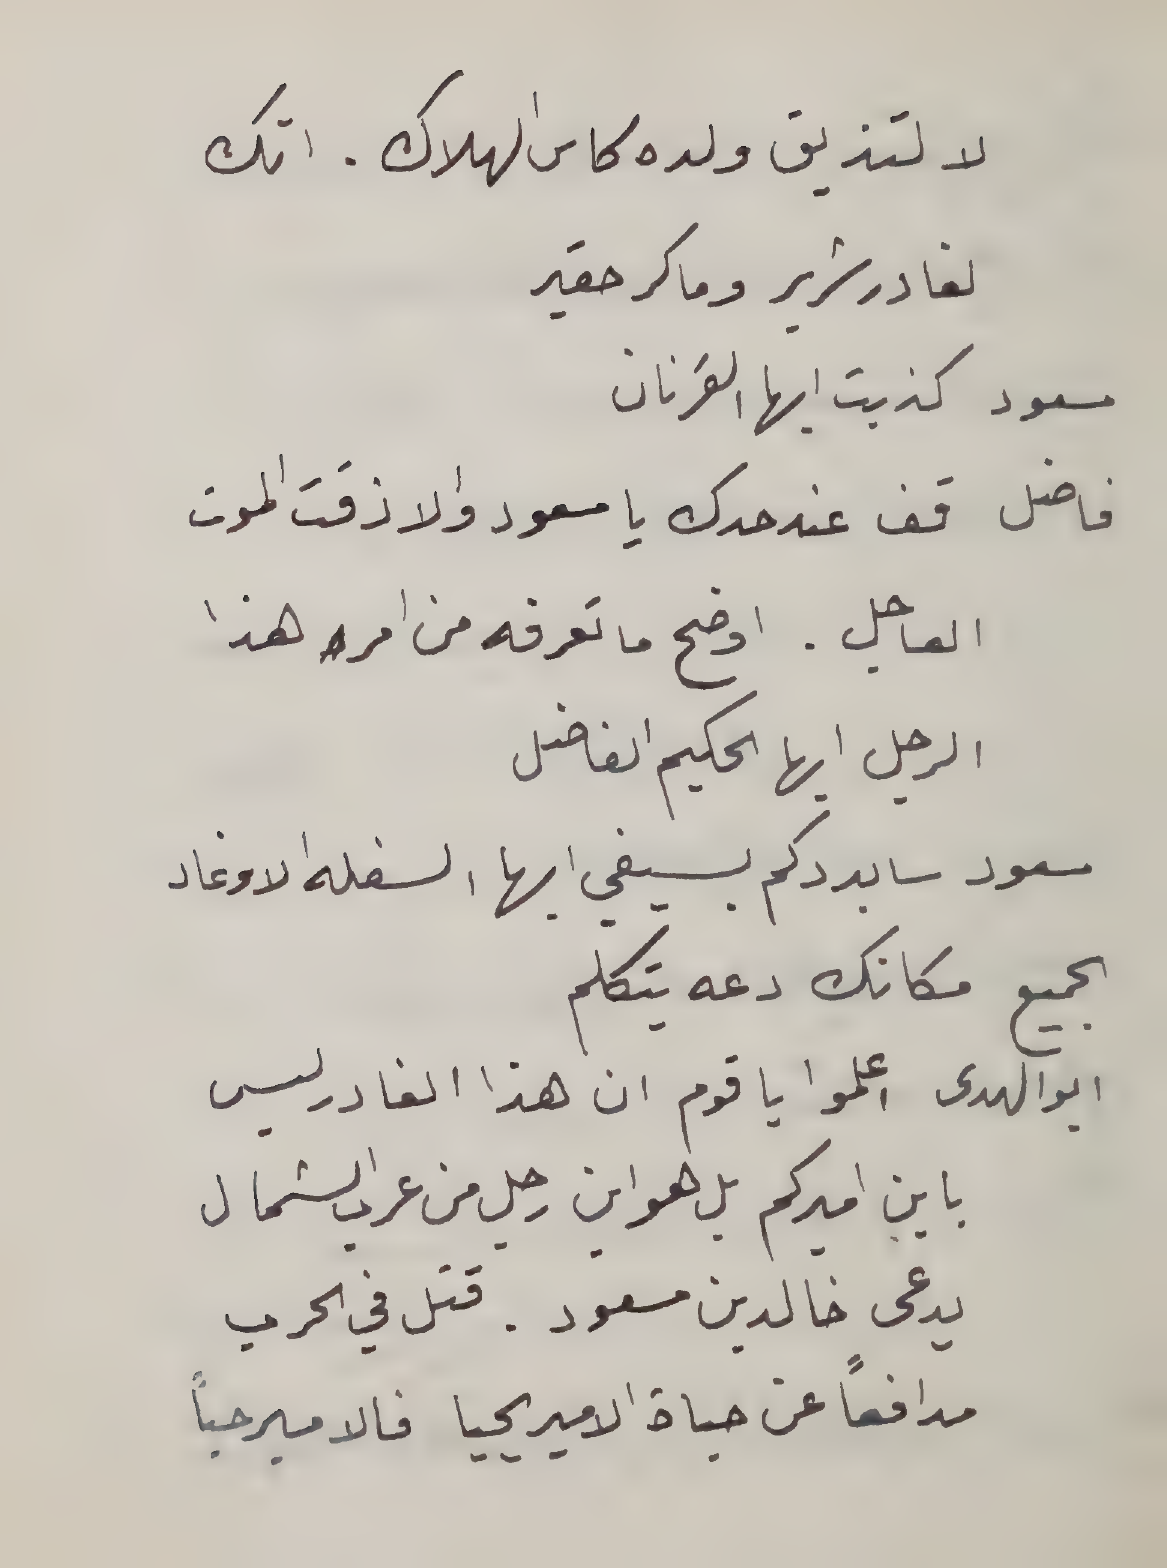 لا لتذيق ولده كاس الهلاك . انك
لغادر شرير وماكر حقير
مسعود كذبت ايها القرنان
فاضل قف عند حدك يا مسعود والا ذقت الموت
العاجل . اوضح ما تعرفه من امره هذا
الرجل ايها الحكيم الفاضل
مسعود سابددكم بسيفي ايها السفله الاوغاد
الجميع مكانك دعه يتكلم
ابو الهدى اعلموا يا قوم ان هذا الغادر ليس
بابن اميركم بل هو ابن رجل من عرب الشمال
يدعى خالد بن مسعود . قتل في الحرب
مدافعاً عن حياة الامير يحيا فالامير حباً